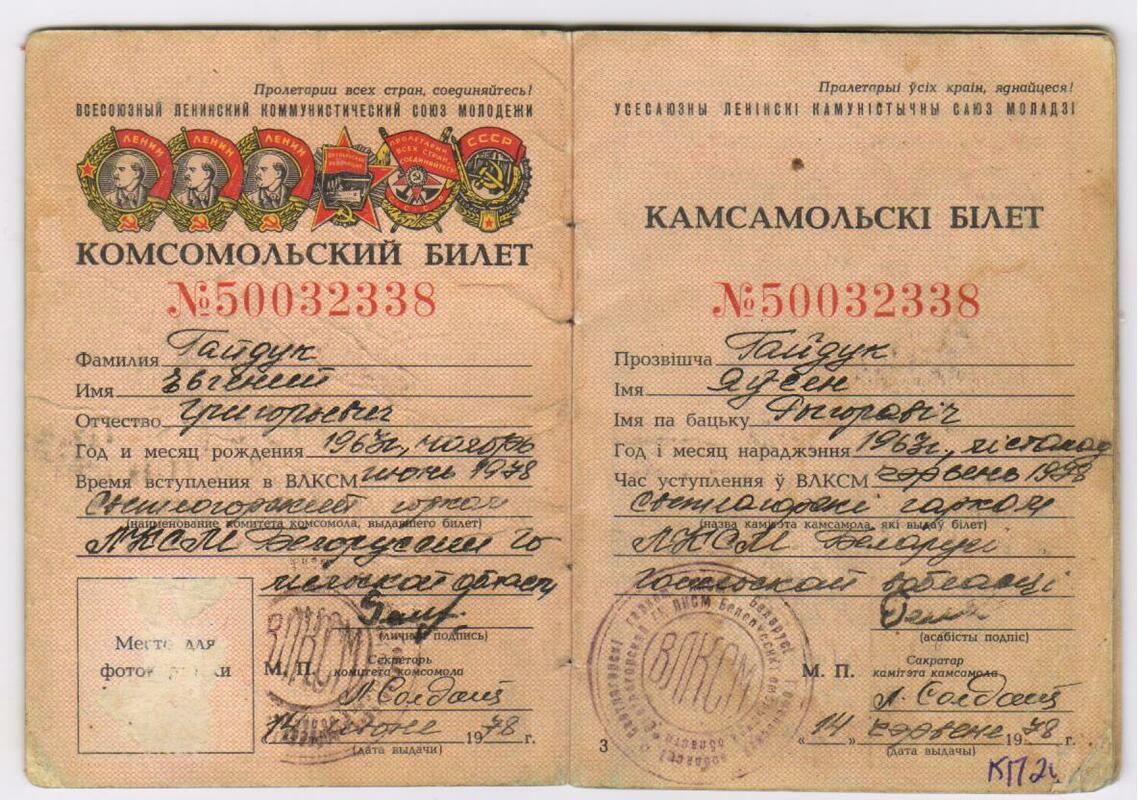 Пролетарии всех стран, соединяйтесь!
ВСЕСОЮЗНЫЙ ЛЕНИНСКИЙ КОММУНИСТИЧЕСКИЙ СОЮЗ МОЛОДЕЖИ
ЛЕНИН ЛЕНИН ЛЕНИН ПРОЛЕТАРИИ ВСЕХ СТРАН, СОЕДИНЯЙТЕСЬ СССР
КОМСОМОЛЬСКИЙ БИЛЕТ
№50032338
Фамилия Гайдук
Имя Евгений
Отчество Григорьевич
Год и месяц рождения 1963г, ноябрь
Время вступления в ВЛКСМ июнь 1978
Светлогорский горком
(наименование комитета комсомола, выдавшего билет)
ЛКСМ Белоруссии Го
мельской области
(личная подпись)
Место для
фотокарточки
ВЛКСМ
М. П.
Секретарь
комитета комсомола
Л. Солдат
14 июня 1978 г.
(дата выдачи)
Пралетарыі ўсіх краін, яднайцеся!
УСЕСАЮЗНЫ ЛЕНІНСКІ КАМУНІСТЫЧНЫ САЮЗ МОЛАДЗІ
КАМСАМОЛЬСКІ БІЛЕТ
№50032338
Прозвішча Гайдук
Імя Яўген
Імя па бацьку Рыгоравіч
Год і месяц нараджэння 1963г, лістапад
Час уступлення ў ВЛКСМ чэрвень 1978
Светлагорскі гарком
(назва камітэта камсамола, які выдаў білет)
ЛКСМ Беларусі
Гомельскай вобласці
(асабісты подпіс)
ВЛКСМ
М. П.
Сакратар
камітэта камсамола
Л. Солдат
"14" чэрвеня 1978 г.
(дата выдачы)
3